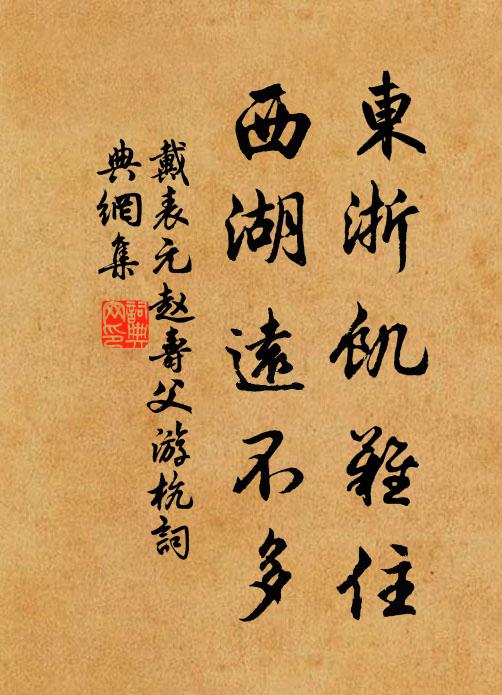 東浙飢難住
西湖遠不多
戴表元赵壽父游杭詞
典網集
詞典
网印